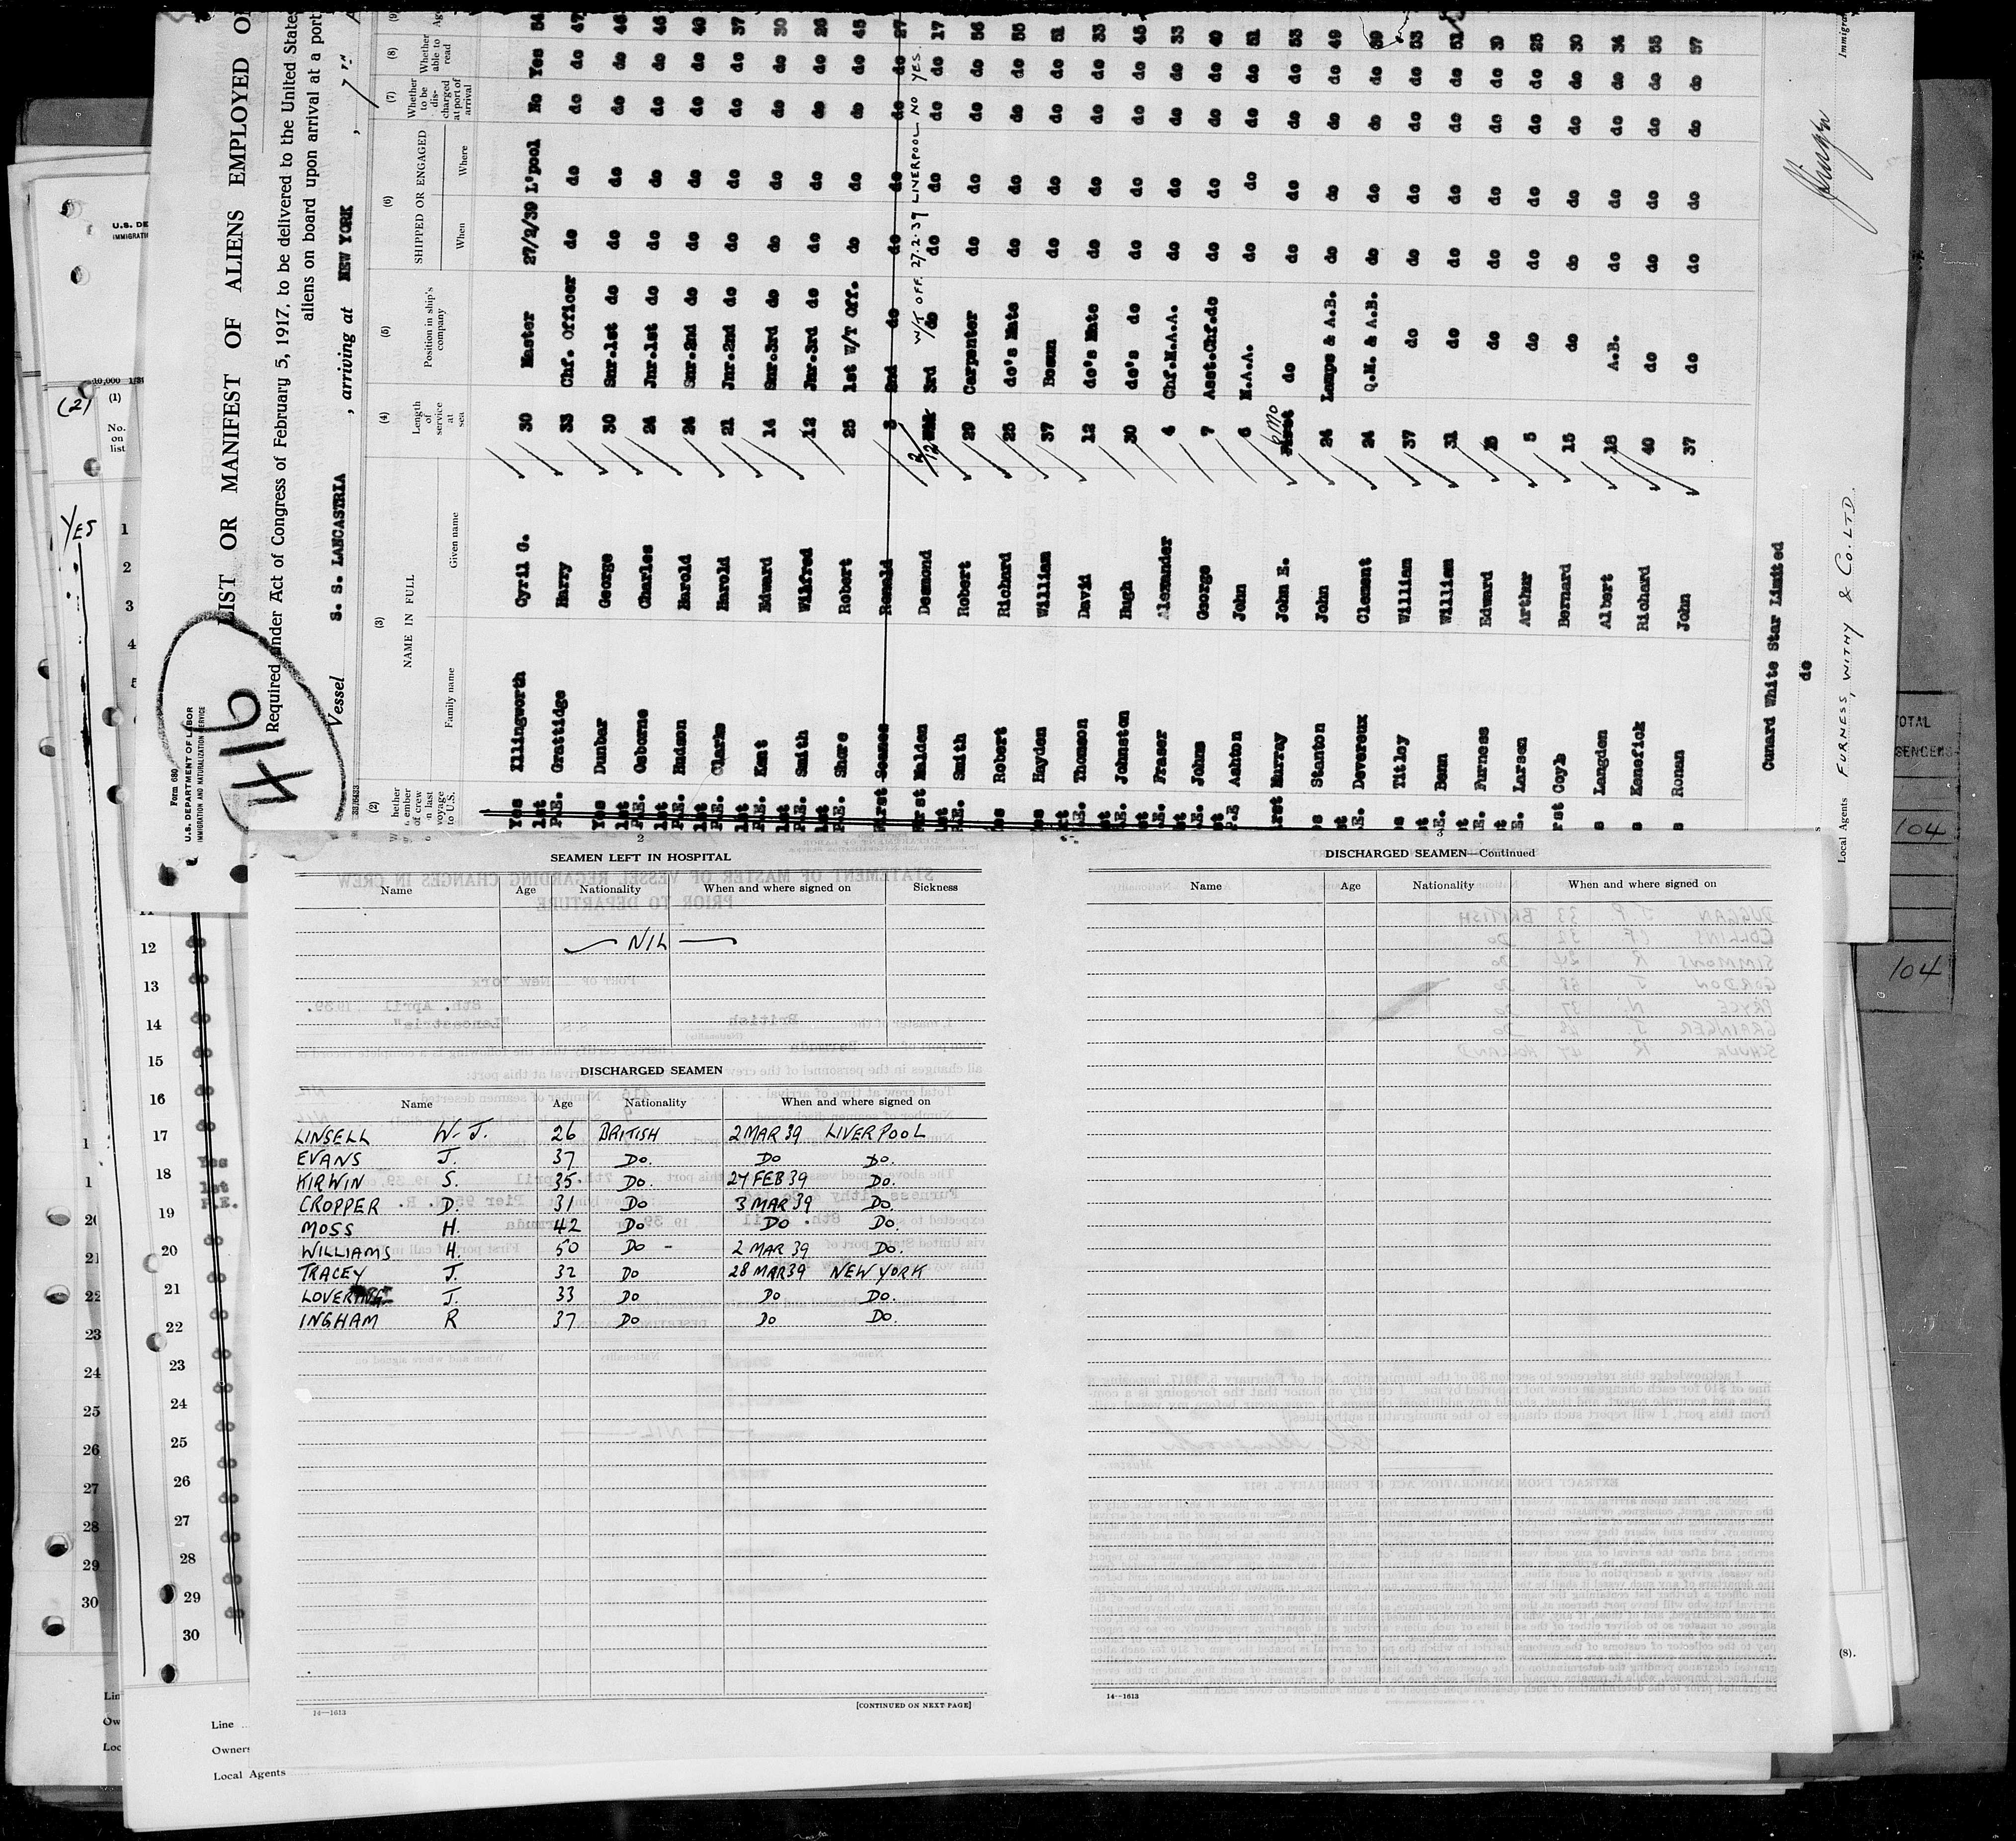 Form 680
U.S. DEPARTMENT OF LABOR
IMMIGRATION AND NATURALIZATION SERVICE
416
LIST OR MANIFEST OF ALIENS EMPLOYED O
Required under Act of Congress of February 5, 1917, to be delivered to the United State
aliens on board upon arrival at a port
Vessel S. S. LANCASTRIA, arriving at NEW YORK, 7TH
(2) (3) (4) (5) (6) (7) (8) (9)
NAME IN FULL Length of service at sea Position in ship's company SHIPPED OR ENGAGED Whether to be discharged at port of arrival Whether able to read
Family name Given name When Where
Yes Illingworth Cyril G. 30 Master 27/2/39 L'pool No Yes 54
1st P.E. Grattidge Harry 33 Chf. Officer do do do do 47
Yes Dunbar George 30 Snr.1st do do do do do 46
1st P.E. Osborne Charles 24 Jnr.1st do do do do do
1st P.E. Hudson Harold 24 Snr.2nd do do do do do 40
1st P.E. Clarke Harold 21 Jnr.2nd do do do do do 37
1st P.E. Kent Edward 14 Snr.3rd do do do do do 30
1st P.E. Smith Wilfred 12 Jnr.3rd do do do do do 26
1st P.E. Shore Robert 25 1st W/T Off. do do do do 45
First Ronald 2nd do do do do do 27
W/T OFF. 27.2.39 LIVERPOOL NO YES.
First Malden Desmond 3rd do do do do do 17
1st P.E. Smith Robert 29 Carpenter do do do do 56
Robert Richard 25 do's Mate do do do do 55
Hayden William 37 Bosun do do do do 51
Thomson David 12 do's Mate do do do do 33
Johnston Hugh 30 do's do do do do do 45
Fraser Alexander 4 Chf.M.A.A. do do do do 33
Johns George 7 Asst.Chf.do do do do do 40
Ashton John 6 M.A.A. do do do do 51
Murray John E. 6 MO do do do do do 53
Stanton John 24 Lamps & A.B. do do do do 49
Devereux Clement 24 Q.M. & A.B. do do do do
Titley William 37 do do do do do 53
Benn William 31 do do do do do 51
Furness Edward do do do do do
Larsen Arthur 5 do do do do do 25
Coyle Bernard 15 do do do do do 30
Langden Albert 18 A.B. do do do do 34
Kenefick Richard 40 do do do do do 55
Ronan John 37 do do do do do 57
Cunard White Star Limited
do
Local Agents FURNESS, WITHY & CO. LTD.
Immigra
U.S. DE
IMMIGRATI
(2) (1)
No. on list
YES
1
2
3
4
11
12
13
14
15
16
17
18
19
20
21
22
23
24
25
26
27
28
29
30
22
23
24
25
26
27
28
29
30
Yes
1st
P.E.
Line
Owners
Local Agents
OTAL
SENGERS
104
104
(8).
2
SEAMEN LEFT IN HOSPITAL
Name Age Nationality When and where signed on Sickness
NIL
DISCHARGED SEAMEN
Name Age Nationality When and where signed on
LINSELL W. J. 26 BRITISH 2 MAR 39 LIVERPOOL
EVANS J. 37 DO. DO DO.
KIRWIN S. 35 DO. 27 FEB 39 DO.
CROPPER D. 31 DO 3 MAR 39 DO.
MOSS H. 42 DO DO. DO.
WILLIAMS H. 50 DO - 2 MAR 39 DO.
TRACEY J. 32 DO 28 MAR 39 NEW YORK
J. 33 DO DO DO.
INGHAM R 37 DO DO DO.
[CONTINUED ON NEXT PAGE]
14—1613
3
DISCHARGED SEAMEN—Continued
Name Age Nationality When and where signed on
14—1613